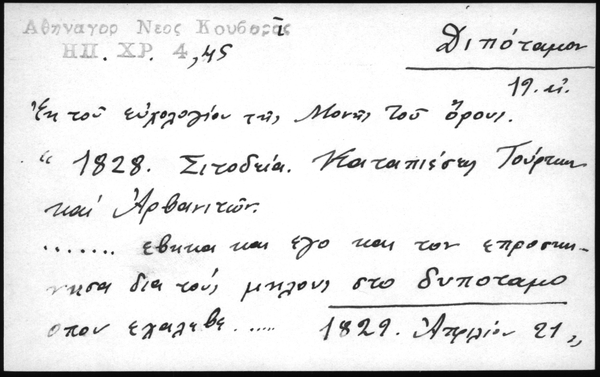 Αθηναγορ Νεος Κουβαράς
ΗΠ. ΧΡ. 4,45
Διπόταμον
19. αἰ.
Ἐκ τοῦ εὐχολογίου τῆς Μονῆς τοῦ ὄρους.
“ 1828. Σιτοδεία. Καταπιέσεις Τούρκων
καὶ Ἀρβανιτῶν.
....... εβηκα και εγο και τον επροσκη-
νησα δια τους μηλους στο δυποταμο
οπου εχαλεβε. ..... 1829. Ἀπριλίου 21 „